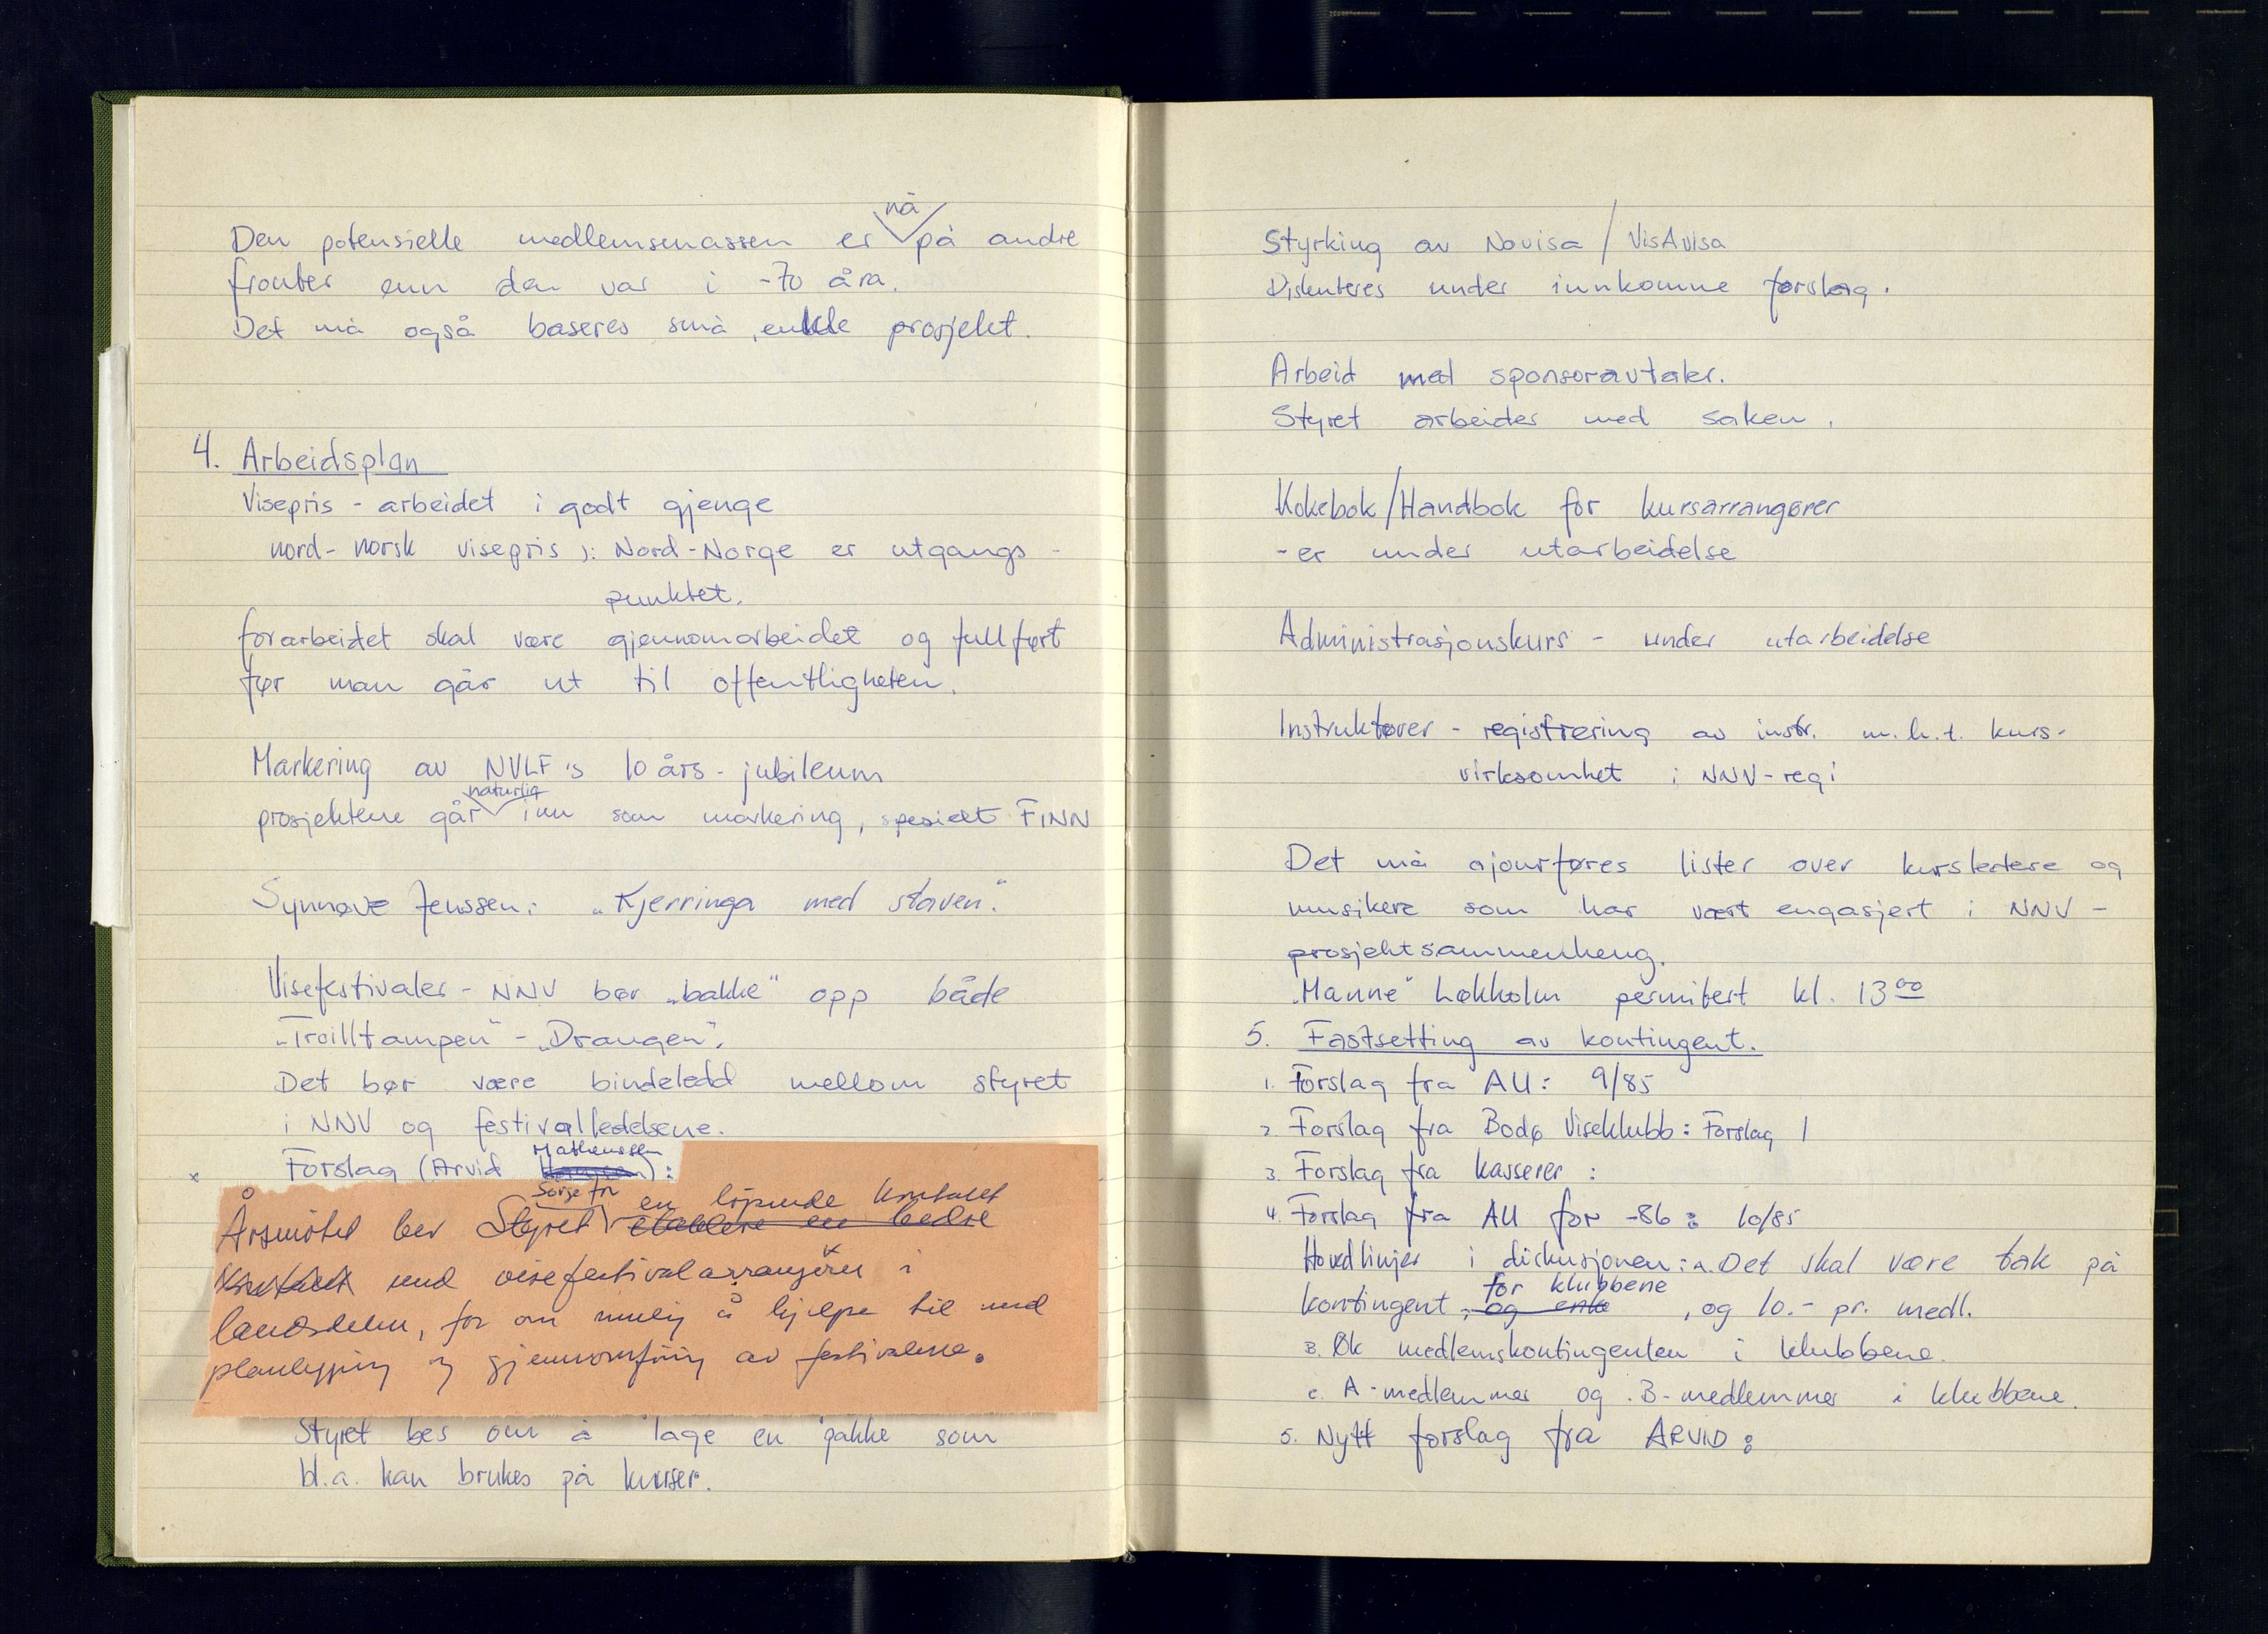 Den potensielle medlemsmassen er nå på andre
fronter enn den var i -70 åra.
Det må også baseres små, enkle prosjekt.
4. Arbeidsplan
Visepris - arbeidet i godt gjenge
nord-norsk visepris ): Nord-Norge er utgangs-
punktet.
forarbeidet skal være gjennomarbeidet og fullført
før man går ut til offentligheten.
Markering av NVLF's 10 års-jubileum
prosjektene går naturlig inn som markering, spesielt FINN
Synnøve Jenssen: "Kjerringa med staven".
Visefestivaler - NNV bør "bakke" opp både
"Troilltampen" - "Draugen".
Det bør være bindeledd mellom styret
i NNV og festivalledelsene.
x Forslag (Arvid Hansen Mathenssen):
Årsmötet ber Styret sörge for en löpende kontakt etablere en bedre
kontakt med visefestivalarrangörer i
landsdelen, for om mulig å hjelpe til med
planlegging og gjennomföring av festivalene.
Styret bes om å lage en pakke som
bl.a. kan brukes på kurser.
Styrking av Novisa / VisAvisa
Diskuteres under innkomne forslag.
Arbeid med sponsoravtaler.
Styret arbeider med saken.
Kokebok/Handbok for kursarrangører
- er under utarbeidelse
Administrasjonskurs - under utarbeidelse
Instruktører - registrering av instr. m.h.t. kurs-
virksomhet i NNV-regi
Det må ajourføres lister over kursledere og
musikere som har vært engasjert i NNV-
prosjektsammenheng.
"Manne" Løkholm permitert kl. 13 00
5. Fastsetting av kontingent.
1. Forslag fra AU: 9/85
2 Forslag fra Bodø Viseklubb: Forslag 1
3. Forslag fra kasserer :
4. Forslag fra AU for -86: 10/85
Hovedlinjer i diskusjonen: A. Det skal være tak på
kontingent, og enke for klubbene, og 10.- pr. medl.
B. Øk medlemskontingenten i klubbene.
C. A-medlemmer og B-medlemmer i klubbene.
5. Nytt forslag fra ARVID: